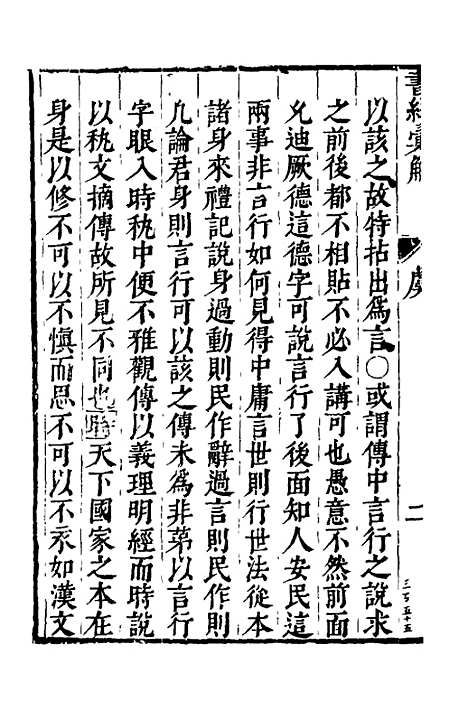 書經實解
虞
二
三百五十五
以該之故特拈出爲言〇或謂傳中言行之說求
之前後都不相貼不必入講可也愚意不然前面
允迪厥德這德字可說言行了後面知人安民這
兩事非言行如何見得中庸言世則行世法從本
諸身來禮記說身過動則民作辭過言則民作則
凡論君身則言行可以該之傳未爲非苐以言行
字眼入時秇中便不雅觀傳以義理明經而時說
以秇文摘傳故所見不同也 天下國家之本在
身是以修不可以不愼而思不可以不永如漢文